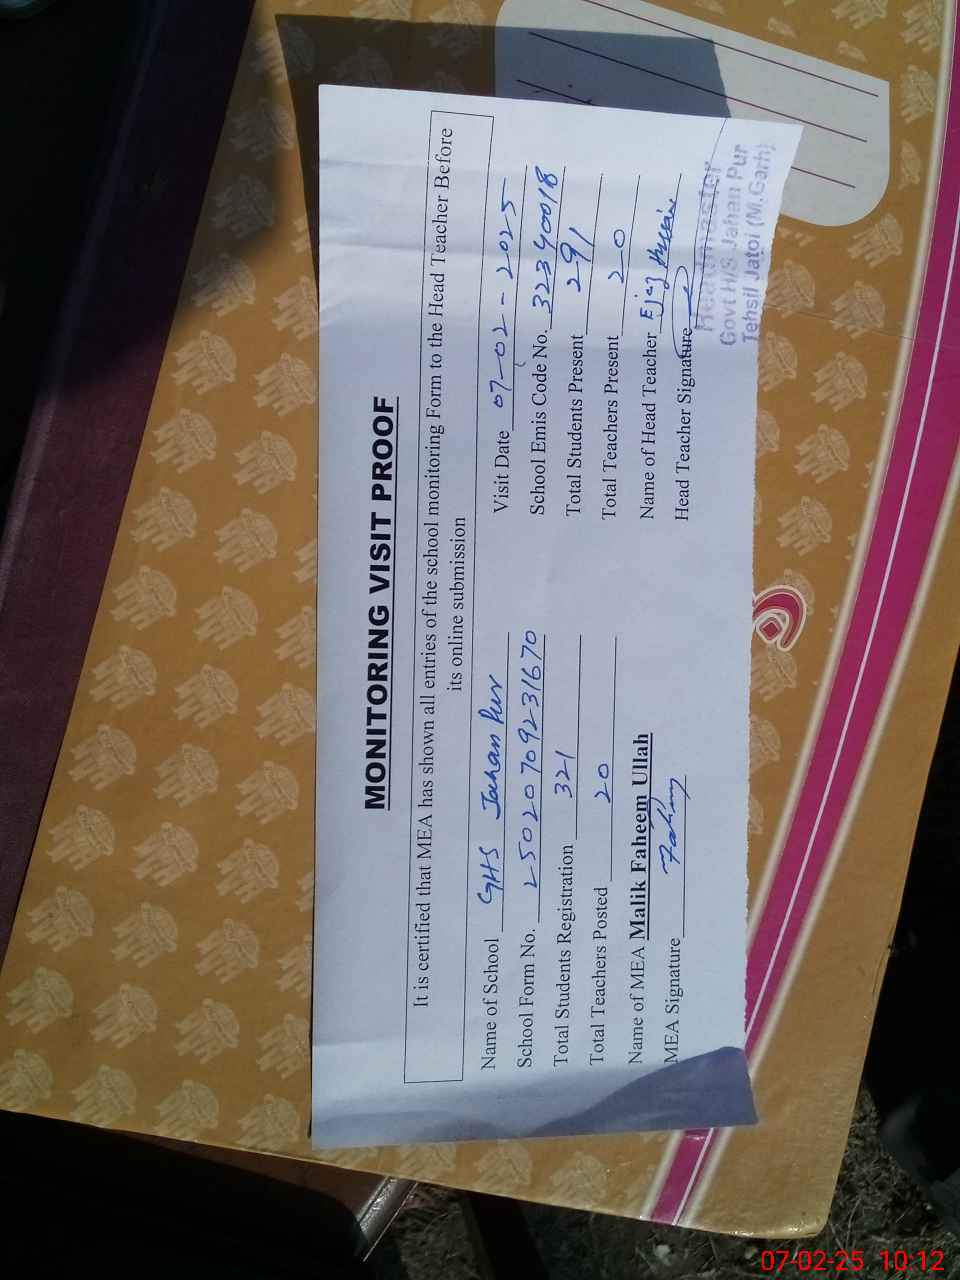 MONITORING VISIT PROOF
It is certified that MEA has shown all entries of the school monitoring Form to the Head Teacher Before
its online submission
Name of School GHS Jahan Pur Visit Date 07-02-2025
School Form No. 25020709231670 School Emis Code No. 32340018
Total Students Registration 321 Total Students Present 291
Total Teachers Posted 20 Total Teachers Present 20
Name of MEA Malik Faheem Ullah Name of Head Teacher Ejaz Hussain
MEA Signature Fahim Head Teacher Signature
Headmaster
Govt H/S Jahan Pur
Tehsil Jatoi (M.Garh)
07-02-25 10:12